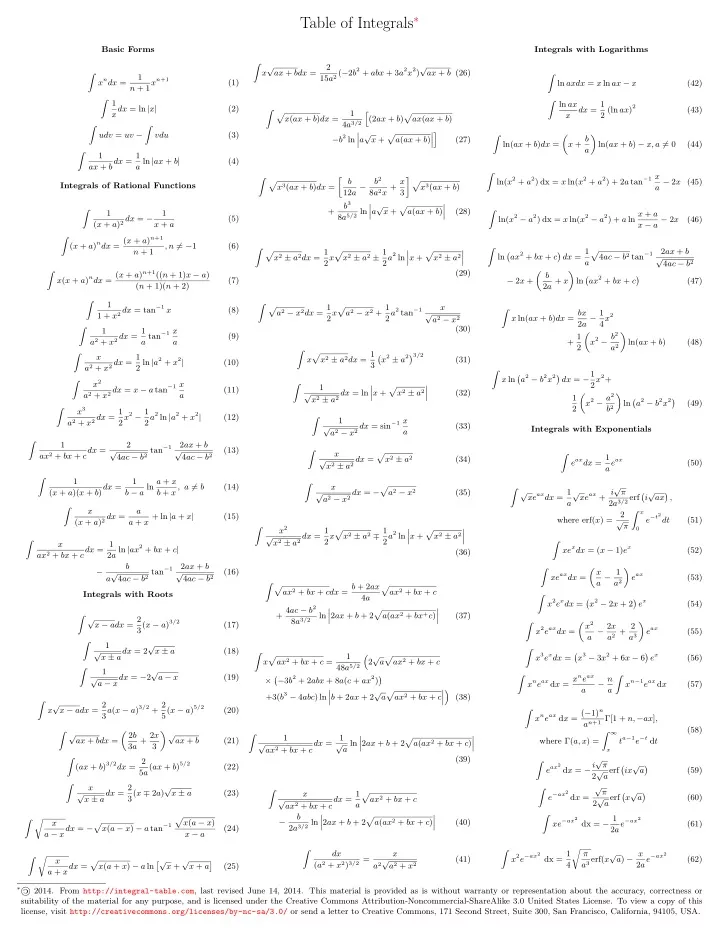 Table of Integrals*
Basic Forms
∫ xⁿdx = 1/(n + 1) xⁿ⁺¹ (1)
∫ 1/x dx = ln |x| (2)
∫ udv = uv − ∫ vdu (3)
∫ 1/(ax + b) dx = 1/a ln |ax + b| (4)
Integrals of Rational Functions
∫ 1/(x + a)² dx = − 1/(x + a) (5)
∫ (x + a)ⁿdx = (x + a)ⁿ⁺¹/(n + 1), n ≠ −1 (6)
∫ x(x + a)ⁿdx = (x + a)ⁿ⁺¹((n + 1)x − a)/((n + 1)(n + 2)) (7)
∫ 1/(1 + x²) dx = tan⁻¹ x (8)
∫ 1/(a² + x²) dx = 1/a tan⁻¹ x/a (9)
∫ x/(a² + x²) dx = 1/2 ln |a² + x²| (10)
∫ x²/(a² + x²) dx = x − a tan⁻¹ x/a (11)
∫ x³/(a² + x²) dx = 1/2 x² − 1/2 a² ln |a² + x²| (12)
∫ 1/(ax² + bx + c) dx = 2/√(4ac − b²) tan⁻¹ (2ax + b)/√(4ac − b²) (13)
∫ 1/((x + a)(x + b)) dx = 1/(b − a) ln (a + x)/(b + x), a ≠ b (14)
∫ x/(x + a)² dx = a/(a + x) + ln |a + x| (15)
∫ x/(ax² + bx + c) dx = 1/2a ln |ax² + bx + c|
− b/(a√(4ac − b²)) tan⁻¹ (2ax + b)/√(4ac − b²) (16)
Integrals with Roots
∫ √(x − a)dx = 2/3 (x − a)^(3/2) (17)
∫ 1/√(x ± a) dx = 2√(x ± a) (18)
∫ 1/√(a − x) dx = −2√(a − x) (19)
∫ x√(x − a)dx = 2/3 a(x − a)^(3/2) + 2/5 (x − a)^(5/2) (20)
∫ √(ax + b)dx = (2b/3a + 2x/3) √(ax + b) (21)
∫ (ax + b)^(3/2)dx = 2/5a (ax + b)^(5/2) (22)
∫ x/√(x ± a) dx = 2/3 (x ∓ 2a)√(x ± a) (23)
∫ √(x/(a − x)) dx = −√(x(a − x)) − a tan⁻¹ √(x(a − x))/(x − a) (24)
∫ √(x/(a + x)) dx = √(x(a + x)) − a ln [√x + √(x + a)] (25)
∫ x√(ax + b)dx = 2/15a² (−2b² + abx + 3a²x²)√(ax + b) (26)
∫ √(x(ax + b))dx = 1/4a^(3/2) [(2ax + b)√(ax(ax + b))
−b² ln |a√x + √(a(ax + b))|] (27)
∫ √(x³(ax + b))dx = [b/12a − b²/8a²x + x/3] √(x³(ax + b))
+ b³/8a^(5/2) ln |a√x + √(a(ax + b))| (28)
∫ √(x² ± a²)dx = 1/2 x√(x² ± a²) ± 1/2 a² ln |x + √(x² ± a²)|
(29)
∫ √(a² − x²)dx = 1/2 x√(a² − x²) + 1/2 a² tan⁻¹ x/√(a² − x²)
(30)
∫ x√(x² ± a²)dx = 1/3 (x² ± a²)^(3/2) (31)
∫ 1/√(x² ± a²) dx = ln |x + √(x² ± a²)| (32)
∫ 1/√(a² − x²) dx = sin⁻¹ x/a (33)
∫ x/√(x² ± a²) dx = √(x² ± a²) (34)
∫ x/√(a² − x²) dx = −√(a² − x²) (35)
∫ x²/√(x² ± a²) dx = 1/2 x√(x² ± a²) ∓ 1/2 a² ln |x + √(x² ± a²)|
(36)
∫ √(ax² + bx + c)dx = (b + 2ax)/4a √(ax² + bx + c)
+ (4ac − b²)/8a^(3/2) ln |2ax + b + 2√(a(ax² + bx+c))| (37)
∫ x√(ax² + bx + c) = 1/48a^(5/2) (2√a√(ax² + bx + c)
× (−3b² + 2abx + 8a(c + ax²))
+3(b³ − 4abc) ln |b + 2ax + 2√a√(ax² + bx + c)|) (38)
∫ 1/√(ax² + bx + c) dx = 1/√a ln |2ax + b + 2√(a(ax² + bx + c))|
(39)
∫ x/√(ax² + bx + c) dx = 1/a √(ax² + bx + c)
− b/2a^(3/2) ln |2ax + b + 2√(a(ax² + bx + c))| (40)
∫ dx/(a² + x²)^(3/2) = x/(a²√(a² + x²)) (41)
Integrals with Logarithms
∫ ln axdx = x ln ax − x (42)
∫ ln ax/x dx = 1/2 (ln ax)² (43)
∫ ln(ax + b)dx = (x + b/a) ln(ax + b) − x, a ≠ 0 (44)
∫ ln(x² + a²) dx = x ln(x² + a²) + 2a tan⁻¹ x/a − 2x (45)
∫ ln(x² − a²) dx = x ln(x² − a²) + a ln (x + a)/(x − a) − 2x (46)
∫ ln (ax² + bx + c) dx = 1/a √(4ac − b²) tan⁻¹ (2ax + b)/√(4ac − b²)
− 2x + (b/2a + x) ln (ax² + bx + c) (47)
∫ x ln(ax + b)dx = bx/2a − 1/4 x²
+ 1/2 (x² − b²/a²) ln(ax + b) (48)
∫ x ln (a² − b²x²) dx = −1/2 x²+
1/2 (x² − a²/b²) ln (a² − b²x²) (49)
Integrals with Exponentials
∫ eᵃˣdx = 1/a eᵃˣ (50)
∫ √xeᵃˣdx = 1/a √xeᵃˣ + i√π/2a^(3/2) erf (i√(ax)),
where erf(x) = 2/√π ∫₀ˣ e^(−t²)dt (51)
∫ xeˣdx = (x − 1)eˣ (52)
∫ xeᵃˣdx = (x/a − 1/a²) eᵃˣ (53)
∫ x²eˣdx = (x² − 2x + 2) eˣ (54)
∫ x²eᵃˣdx = (x²/a − 2x/a² + 2/a³) eᵃˣ (55)
∫ x³eˣdx = (x³ − 3x² + 6x − 6) eˣ (56)
∫ xⁿeᵃˣ dx = xⁿeᵃˣ/a − n/a ∫ xⁿ⁻¹eᵃˣ dx (57)
∫ xⁿeᵃˣ dx = (−1)ⁿ/aⁿ⁺¹ Γ[1 + n, −ax],
(58)
where Γ(a, x) = ∫ₓ^∞ tᵃ⁻¹e⁻ᵗ dt
∫ e^(ax²) dx = − i√π/2√a erf (ix√a) (59)
∫ e^(−ax²) dx = √π/2√a erf (x√a) (60)
∫ xe^(−ax²) dx = − 1/2a e^(−ax²) (61)
∫ x²e^(−ax²) dx = 1/4 √(π/a³) erf(x√a) − x/2a e^(−ax²) (62)
* 2014. From http://integral-table.com, last revised June 14, 2014. This material is provided as is without warranty or representation about the accuracy, correctness or
suitability of the material for any purpose, and is licensed under the Creative Commons Attribution-Noncommercial-ShareAlike 3.0 United States License. To view a copy of this
license, visit http://creativecommons.org/licenses/by-nc-sa/3.0/ or send a letter to Creative Commons, 171 Second Street, Suite 300, San Francisco, California, 94105, USA.